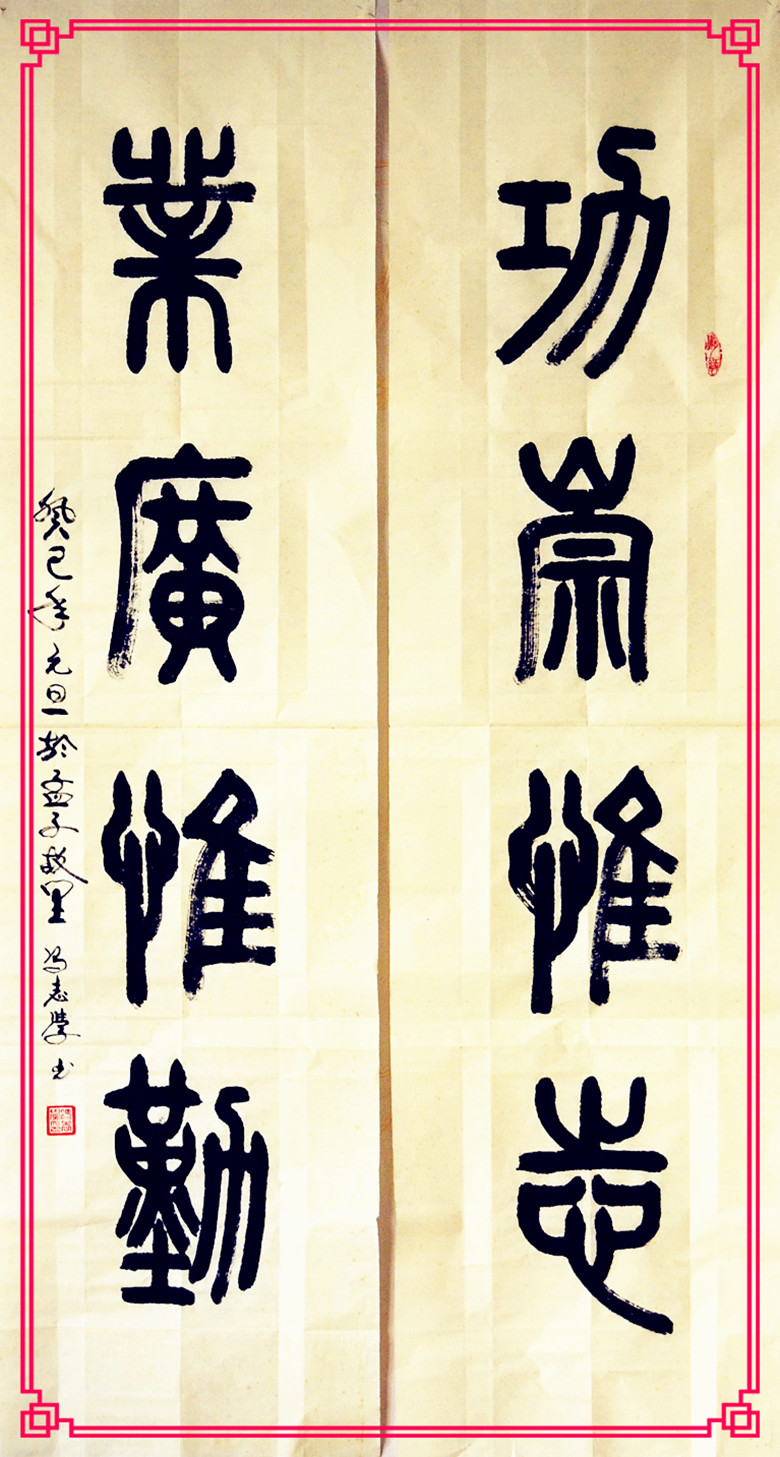 功崇惟志
業廣惟勤
癸巳年元旦於孟子故里馮志學书